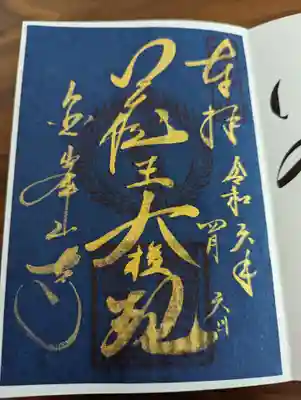 奉拝
令和六年
四月 六日
蔵王大権現
金峯山寺